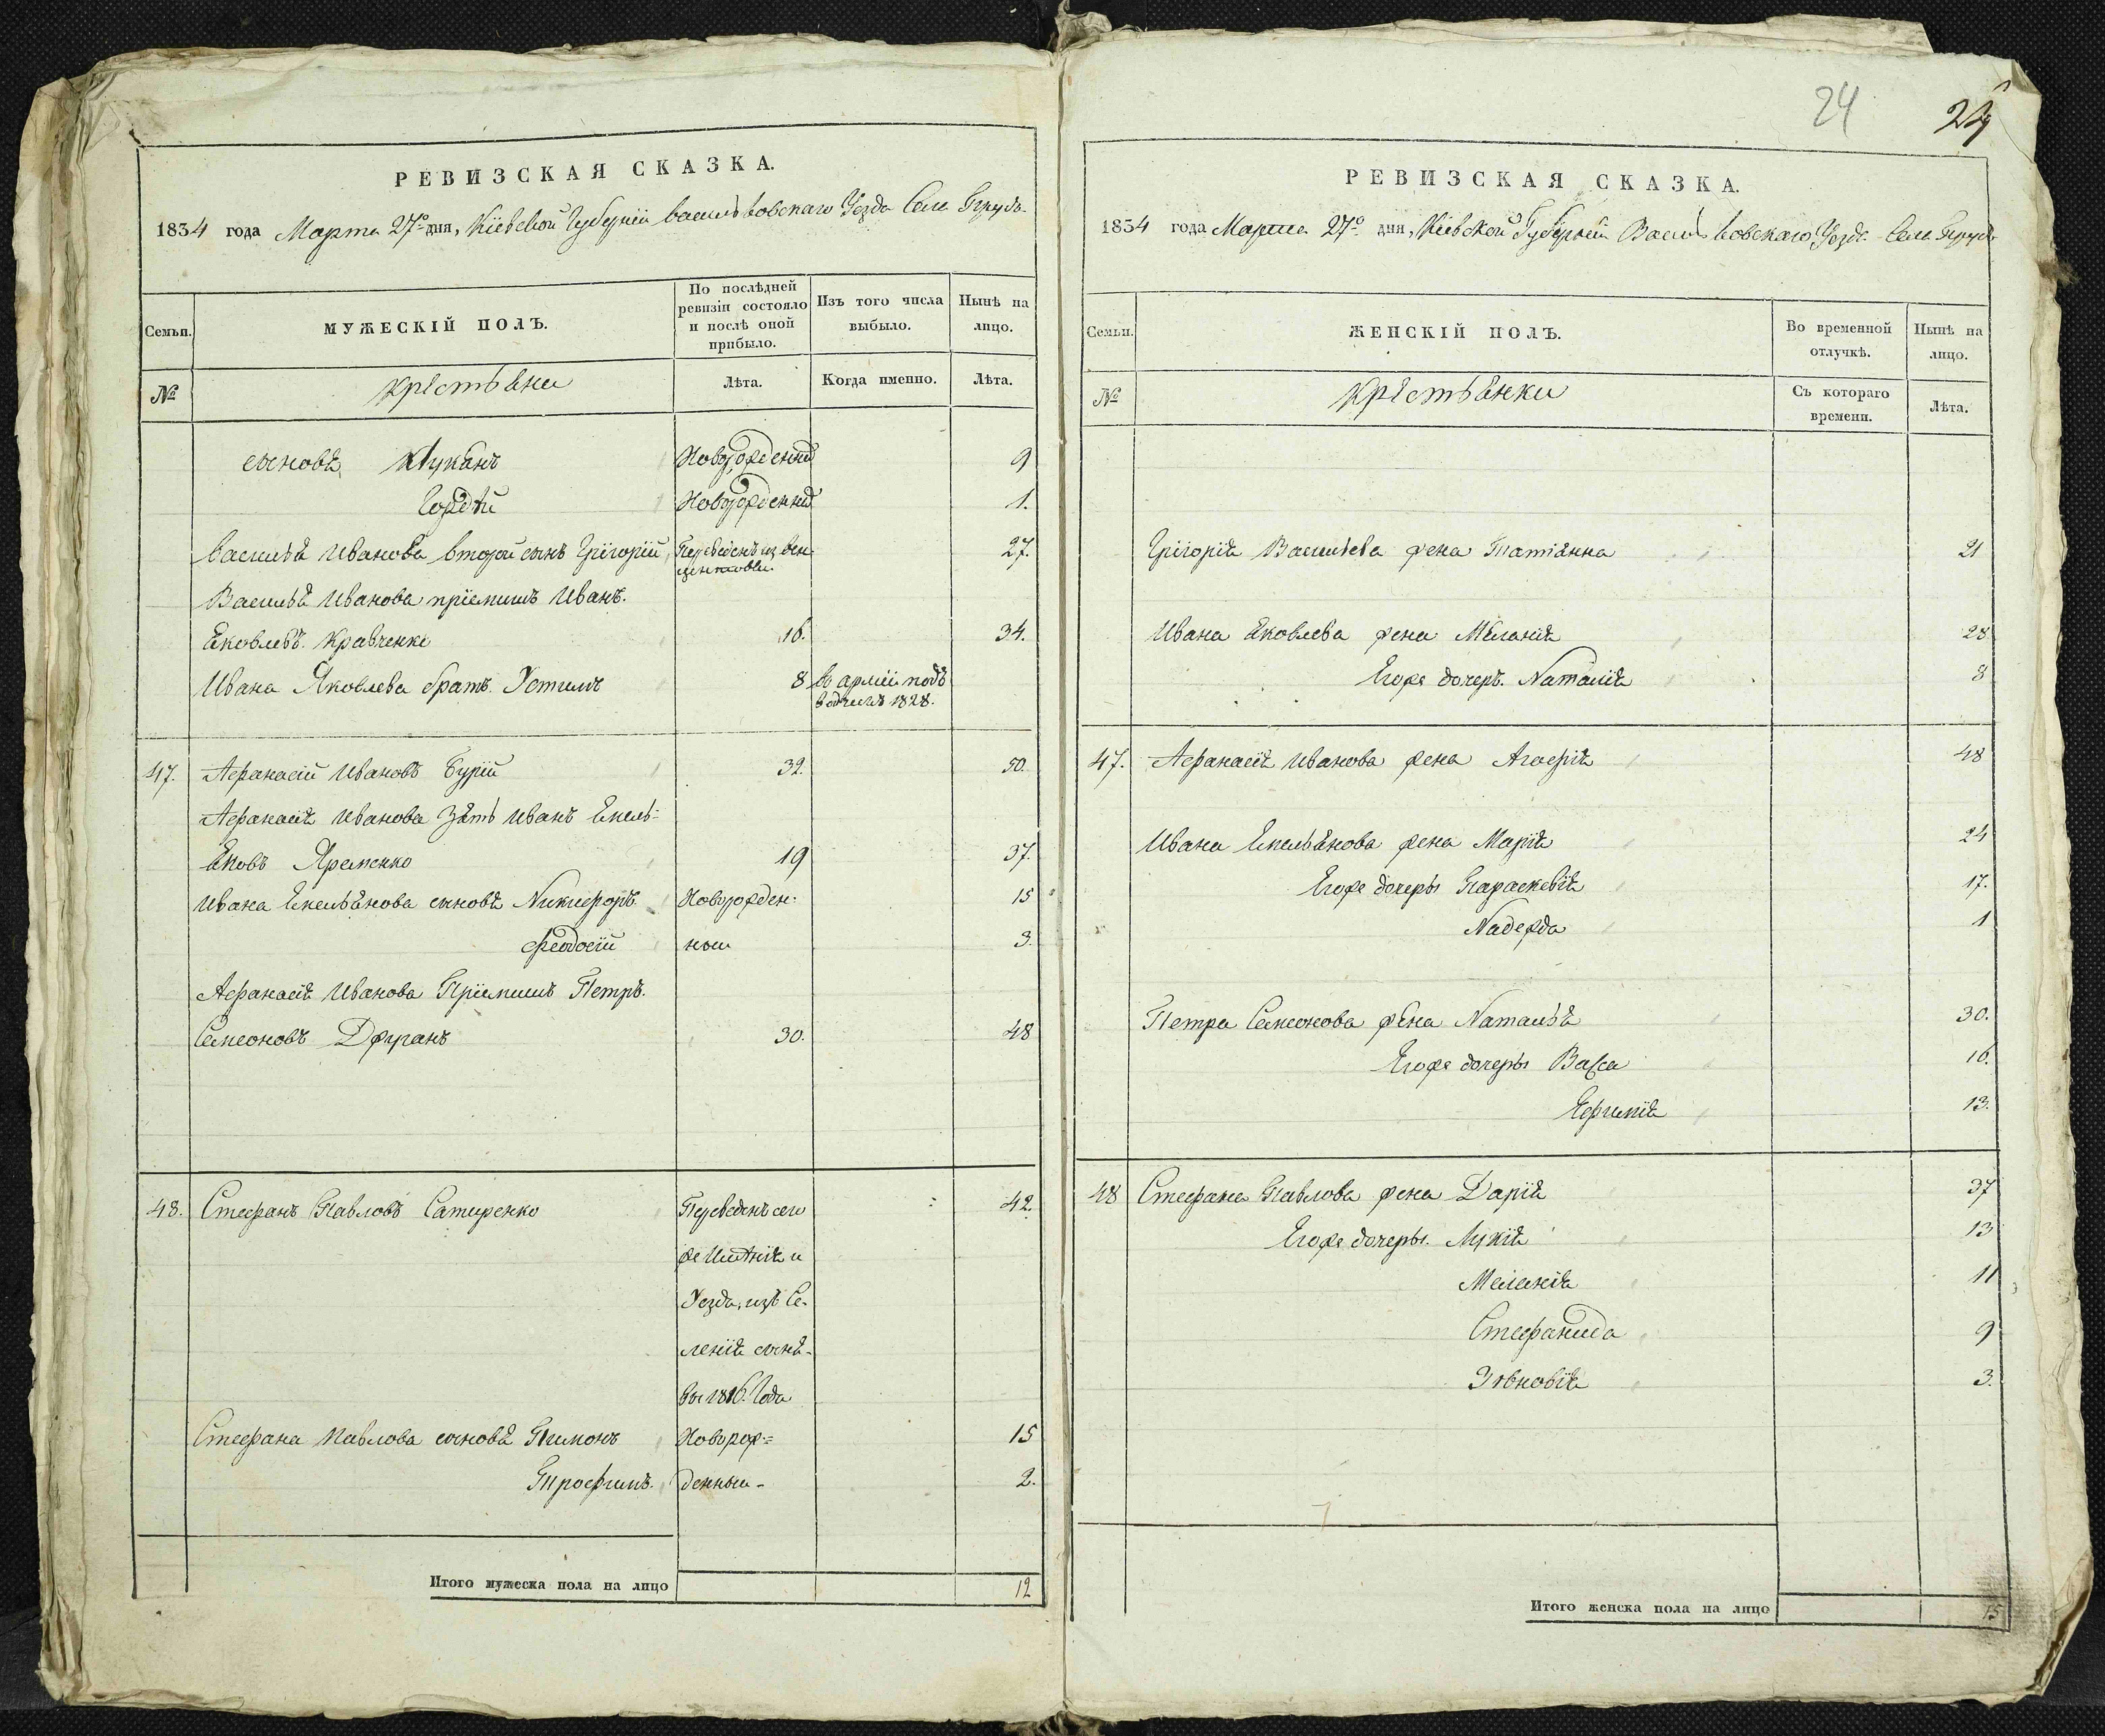 24
РЕВИЗСКАЯ СКАЗКА.
1834 года Марта 27го дня, Кіевской Губерніи Васильковскаго Уезда Села
Семьи.
МУЖЕСКІЙ ПОЛЪ.
По послѣдней ревизіи состояло и послѣ оной прибыло.
Изъ того числа выбыло.
Нынѣ на лицо.
№
Крестьяне
Лѣта.
Когда именно.
Лѣта.
сыновья Новорожденный 9
Гордѣй Новорожденный 1.
Василья Иванова второй сынъ Григорій, Переведенъ из 27.
Василья Иванова пріемишъ Иванъ.
Яковлевъ Кравченко 16. 34.
Ивана Яковлева братъ Устимъ 8 въ арміи подъ
водчикъ 1828.
47. Афанасій Ивановъ Бурій 32. 50.
Афанасія Иванова Зять Иванъ Емель-
яновъ Яременко 19 37.
Ивана Емельянова сыновья Никифоръ Новорожден- 15
Феодосій ныи 3.
Афанасія Иванова Пріемишъ Петръ.
Семеоновъ Джганъ 30. 48
48. Стефанъ Павловъ Сатиренко Переведенъ сего 42.
же Имѣнія и
Уезда, изъ Се-
ленія
1816. Года
Стефана Павлова сыновья Пимонъ Новорож= 15
Трофимъ. денныи- 2.
Итого мужеска пола на лицо 12
РЕВИЗСКАЯ СКАЗКА.
1834 года Марта 27го дня, Кіевской Губерніи Васильковскаго Уезда Села
Семьи.
ЖЕНСКІЙ ПОЛЪ.
Во временной отлучкѣ.
Нынѣ на лицо.
№
Крестьянки
Съ котораго времени.
Лѣта.
Григорія Васильева жена Татіянна 21
Ивана Яковлева жена Меланія 28
Егоже дочеръ Наталія 8
47. Афанасія Иванова жена Агафія 48
Ивана Емельянова жена Марія 24
Егоже дочеры Параскевія 17.
Надежда 1
Петра Семеонова жена Наталья 30.
Егоже дочеры Васса 16.
Ефимія 13.
48 Стефана Павлова жена Дарія 37
Егоже дочеры. Лукія 13
Меланія 11
Стефанида 9
Зѣновія 3.
Итого женска пола на лицо 15